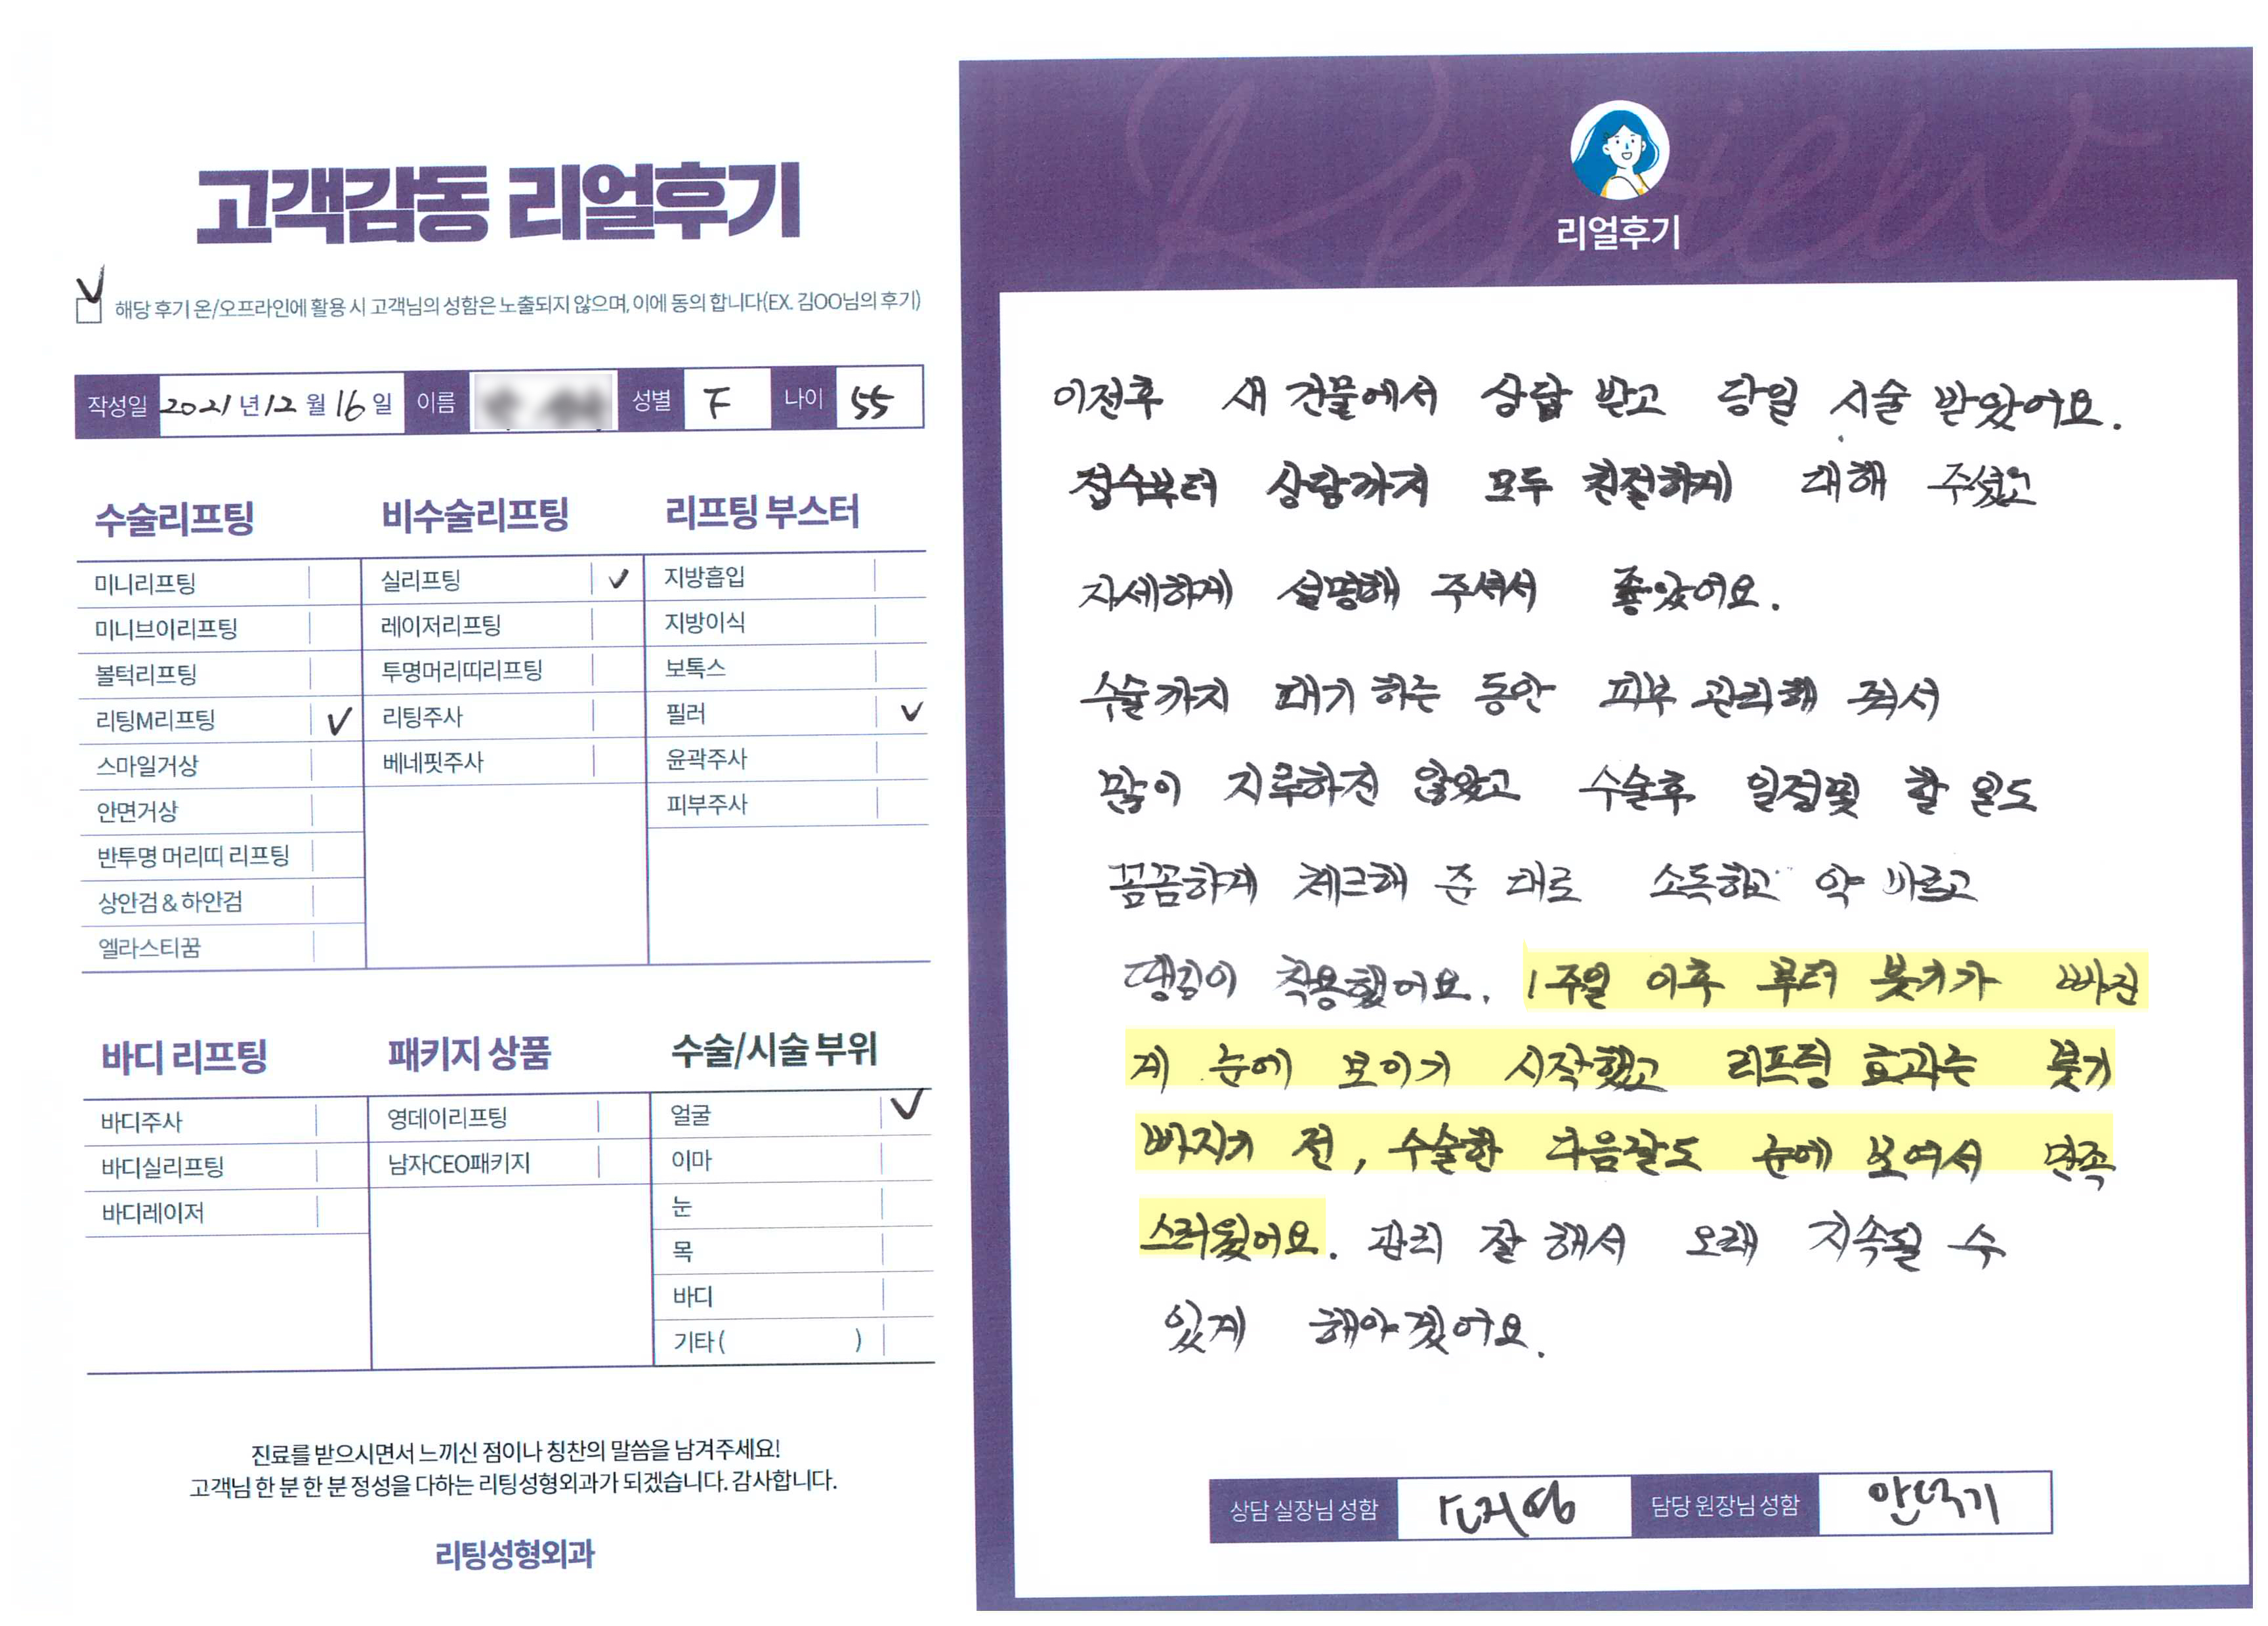 고객감동 리얼후기
해당 후기 온/오프라인에 활용 시 고객님의 성함은 노출되지 않으며, 이에 동의 합니다(EX. 김OO님의 후기)
작성일 2021년 12월 16일 이름 성별 F 나이 55
수술리프팅
미니리프팅
미니브이리프팅
볼턱리프팅
리팅M리프팅
스마일거상
안면거상
반투명 머리띠 리프팅
상안검 & 하안검
엘라스티꿈
비수술리프팅
실리프팅
레이저리프팅
투명머리띠리프팅
리팅주사
베네핏주사
리프팅 부스터
지방흡입
지방이식
보톡스
필러
윤곽주사
피부주사
바디 리프팅
바디주사
바디실리프팅
바디레이저
패키지 상품
영데이리프팅
남자CEO패키지
수술/시술 부위
얼굴
이마
눈
목
바디
기타 ( )
진료를 받으시면서 느끼신 점이나 칭찬의 말씀을 남겨주세요!
고객님 한 분 한 분 정성을 다하는 리팅성형외과가 되겠습니다. 감사합니다.
리팅성형외과
Review
리얼후기
이전후 새 건물에서 상담 받고 당일 시술 받았어요.
접수부터 상담까지 모두 친절하게 대해 주셨고
자세하게 설명해 주셔서 좋았어요.
수술까지 대기 하는 동안 피부 관리해 줘서
많이 지루하진 않았고 수술후 일정및 할 일도
꼼꼼하게 체크해 준 대로 소독하고 약 바르고
땡김이 착용했어요. 1주일 이후 부터 붓기가 빠진
게 눈에 보이기 시작했고 리프팅 효과는 붓기
빠지기 전, 수술한 다음날도 눈에 보여서 만족
스러웠어요. 관리 잘 해서 오래 지속될 수
있게 해야겠어요.
상담 실장님 성함 담당 원장님 성함